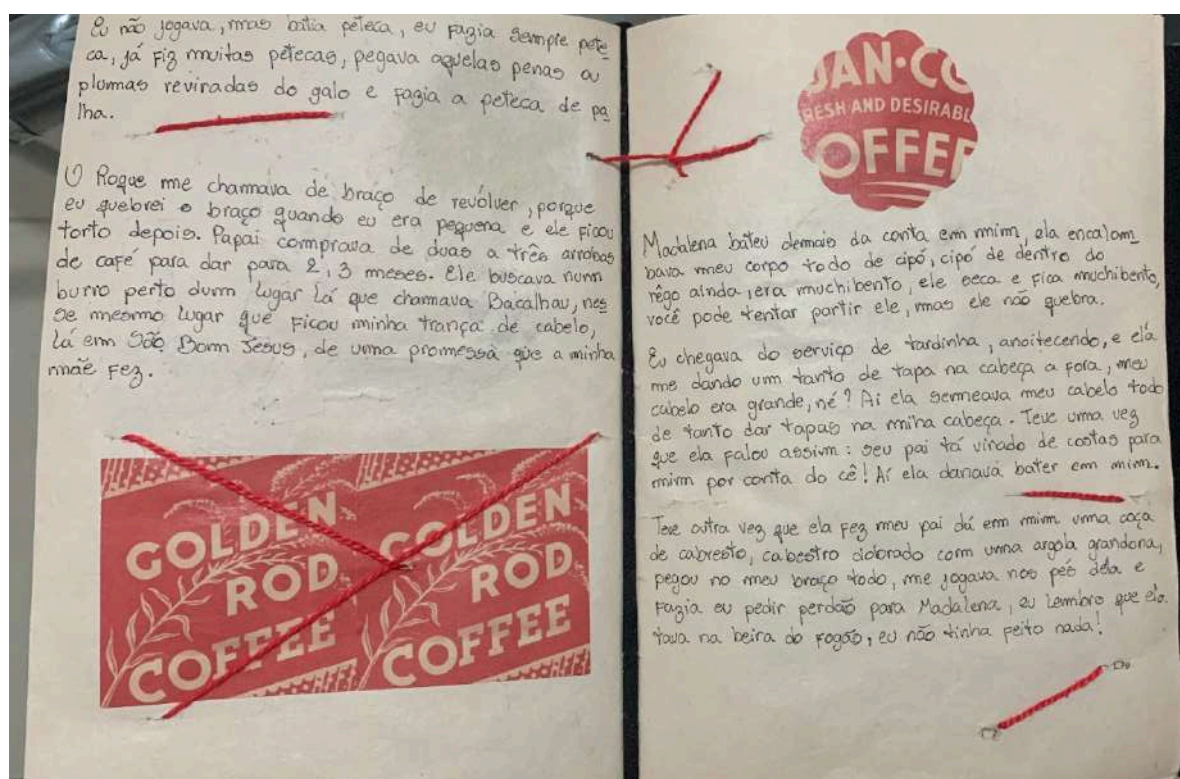 Eu não jogava, mas batia peteca, eu fazia sempre pete
ca, já fiz muitas petecas, pegava aquelas penas ou
plumas reviradas do galo e fazia a peteca de pa
lha.
O Roque me chamava de braço de revólver, porque
eu quebrei o braço quando eu era pequena e ele ficou
torto depois. Papai comprava de duas a três arrobas
de café para dar para 2, 3 meses. Ele buscava num
burro perto dum lugar lá que chamava Bacalhau, nes
se mesmo lugar que ficou minha trança de cabelo,
lá em São Bom Jesus, de uma promessa que a minha
mãe fez.
GOLDEN GOLDEN
ROD ROD
COFFEE COFFEE
JAN-CO
RESH AND DESIRABL
OFFEE
Madalena bateu demais da conta em mim, ela encalom
bava meu corpo todo de cipó, cipó de dentro do
rêgo ainda, era muchibento, ele seca e fica muchibento,
você pode tentar partir ele, mas ele não quebra.
Eu chegava do serviço de tardinha, anoitecendo, e ela
me dando um tanto de tapa na cabeça a fora, meu
cabelo era grande, né? Aí ela semeava meu cabelo todo
de tanto dar tapas na minha cabeça. Teve uma vez
que ela falou assim: seu pai tá virado de costas para
mim por conta do cê! Aí ela danava bater em mim.
Teve outra vez que ela fez meu pai dá em mim uma coça
de cabresto, cabestro dobrado com uma argola grandona,
pegou no meu braço todo, me jogava nos pés dela e
fazia eu pedir perdão para Madalena, eu lembro que ela
tava na beira do fogão, eu não tinha feito nada!